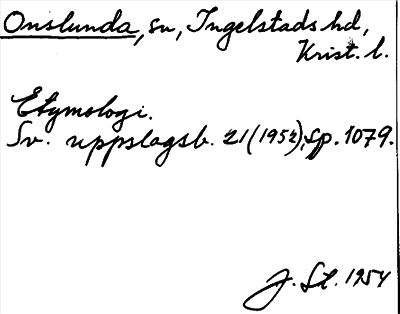 Onslunda, sn, Ingelstads hd,
Krist. l.
Etymologi.
Sv. uppslagsb. 21 (1952), sp. 1079.
J. St. 1954